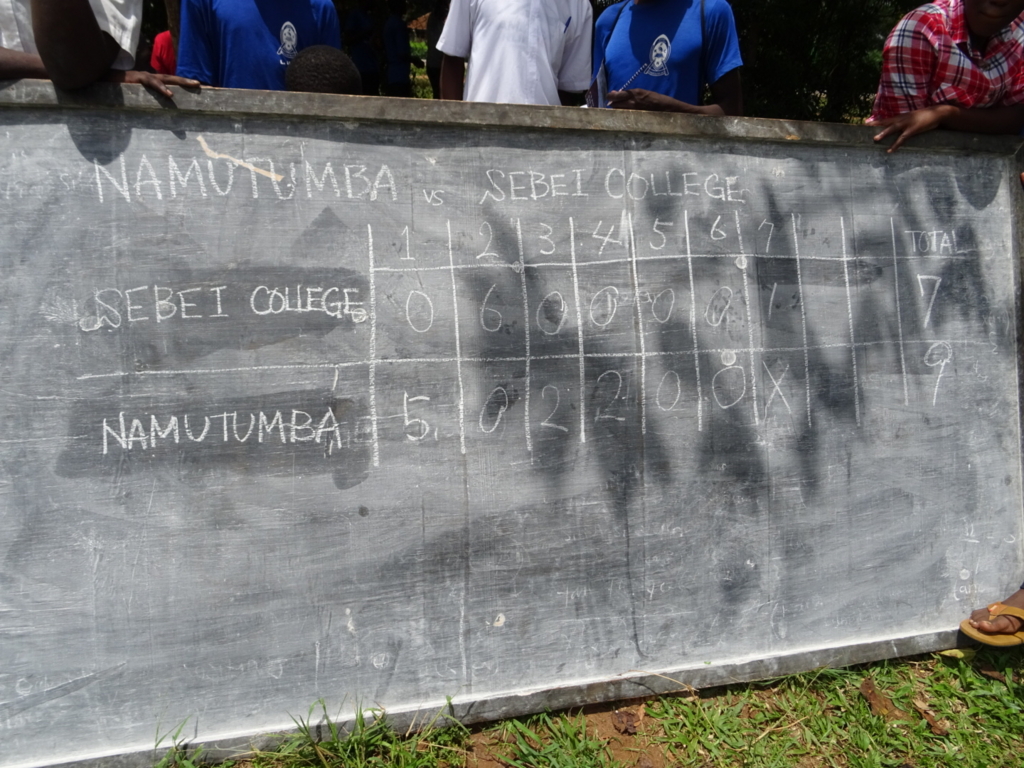 NAMUTUMBA vs SEBEI COLLEGE
1 2 3 4 5 6 7 TOTAL
SEBEI COLLEGE 0 6 0 0 0 0 1 7
NAMUTUMBA 5 0 2 2 0 0 X 9